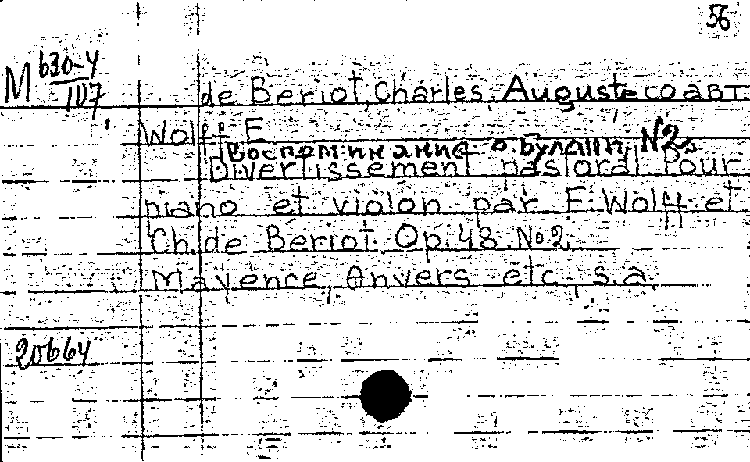 56
M 630-4
107
de Beriot, Charles, Auguste соавт.
Wolff E.
Воспоминание о Булани, N2.
Divertissement pastoral pour
piano et violon par E. Wolff et
Ch. de Beriot. Op. 48 No 2.
Mayence, Anvers etc., s.a.
20664